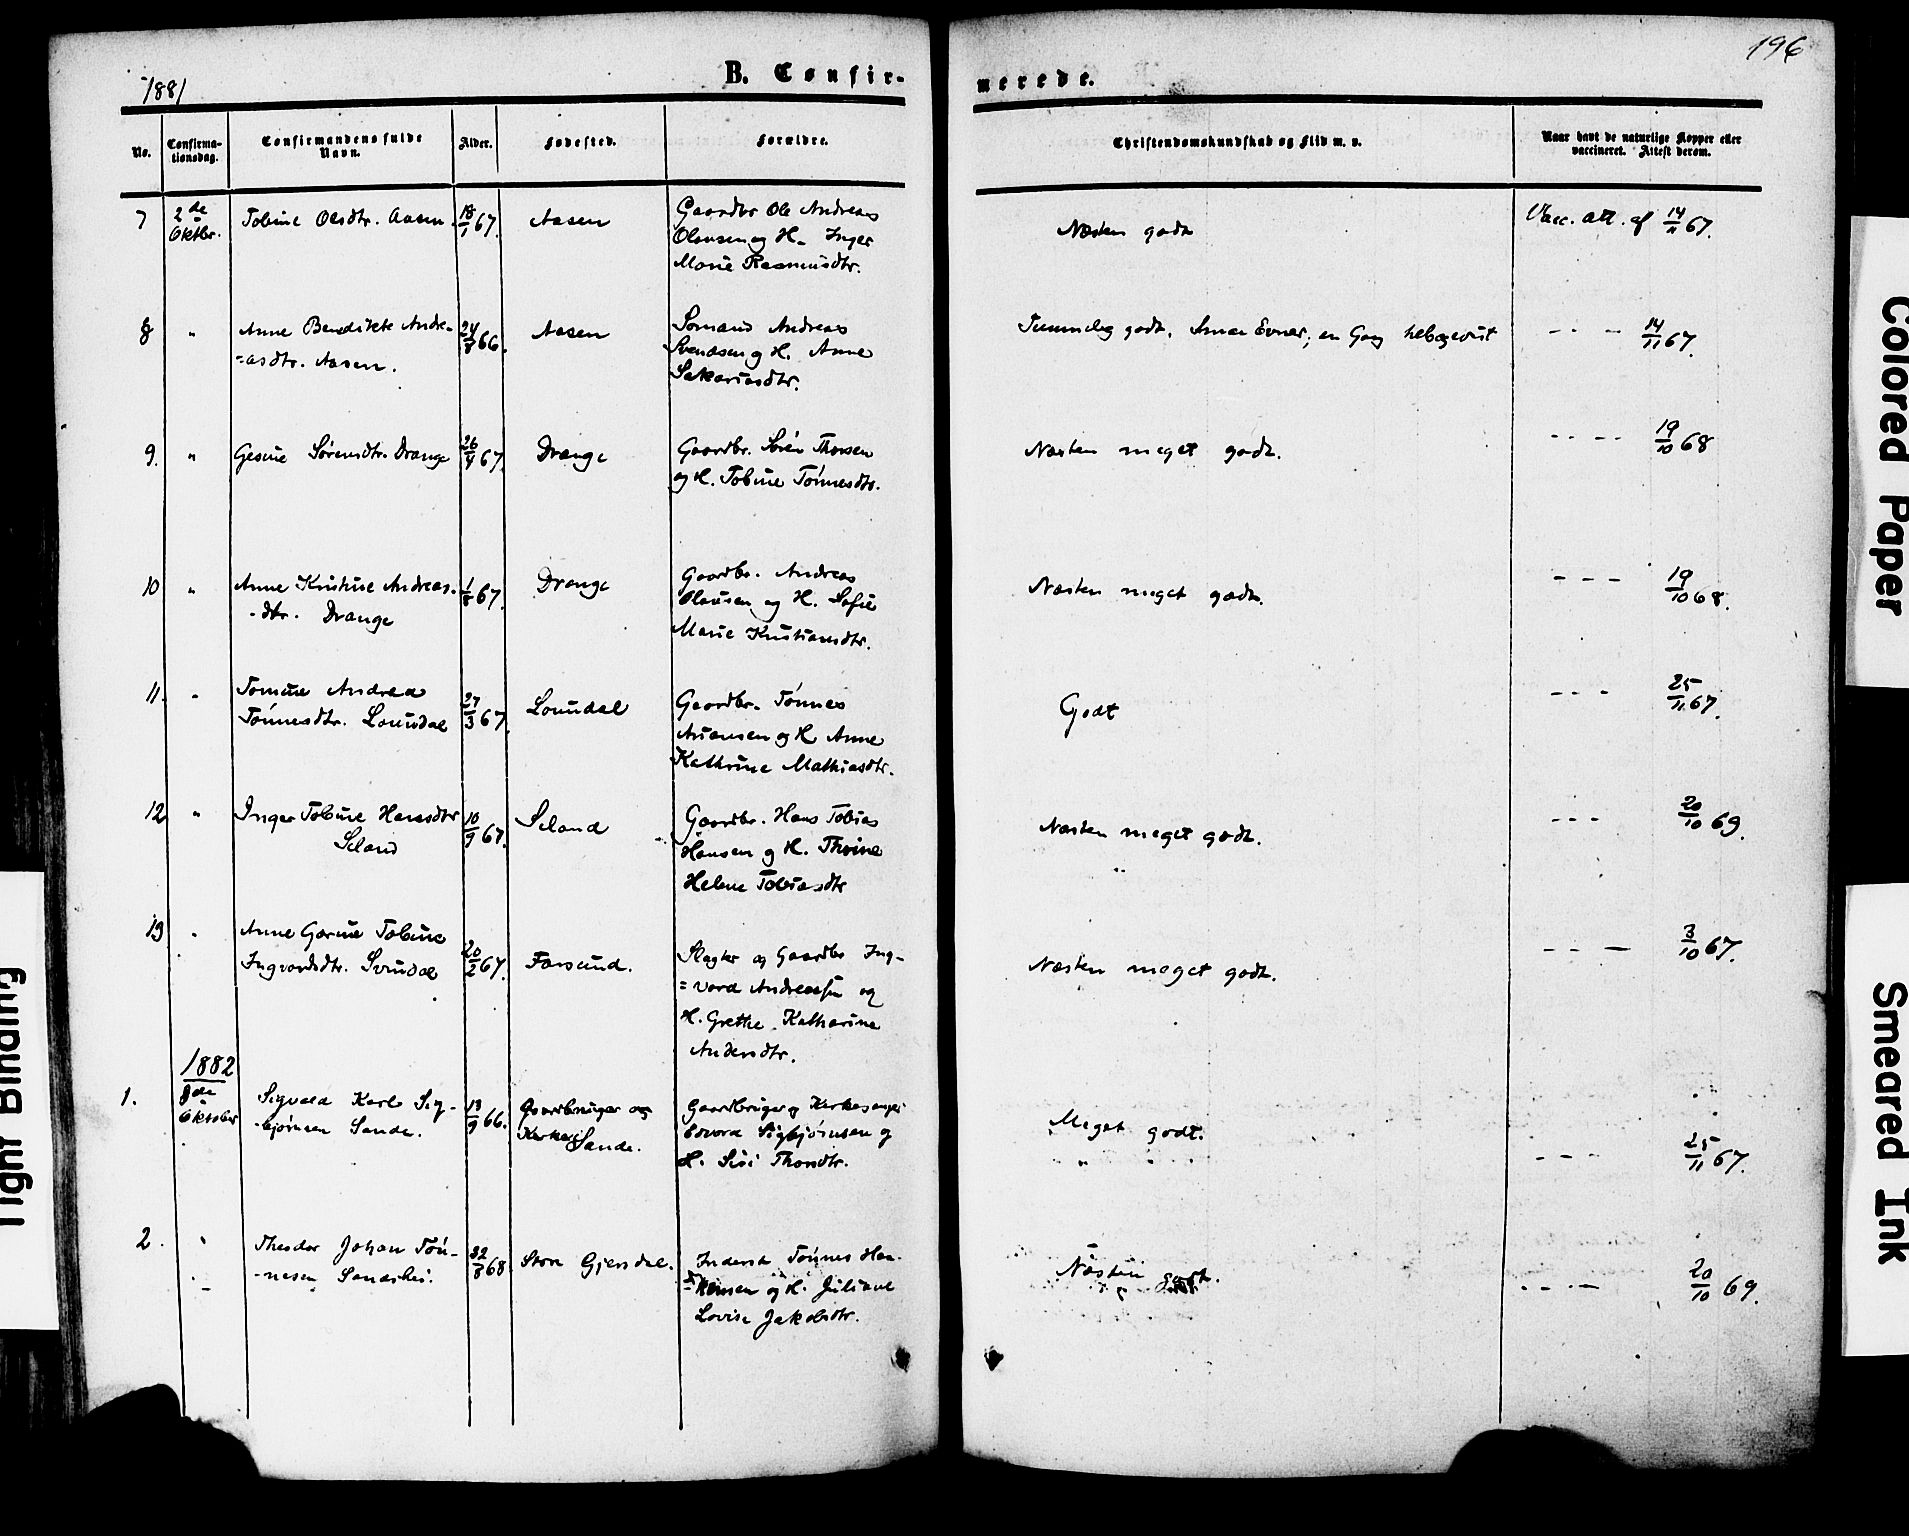 1881
B. Confir-
merede.
196
No.
Confirma-
tionsdag.
Confirmandens fulde
Navn.
Alder.
Fødested.
Forældre.
Christendomskundskab og Flid m. v.
Naar havt de naturlige Kopper eller
vaccineret. Attest derom.
7 2de Oktbr. Tobine Olsdtr. Aasen. 18/1 67. Aasen
Gaardbr Ole Andreas
Olausen og H. Inger
Marie Rasmusdtr.
Næsten godt
Vacc. att. af 14/11 67.
8 " Anne Bendikte Andre-
=asdtr. Aasen.
24/8 66. Aasen
Somand Andreas
Svendsen og H. Anne
Sakariasdtr.
Temmelig godt. Smaa Evner; en Gang
- - - 14/11 67.
9. " Gesine Sørensdtr. Drange 26/4 67. Drange
Gaardbr. Søren Thorsen
og H. Tobine Tønnesdtr.
Næsten meget godt.
- - - - 19/10 68
10 " Anne Kristine Andreas-
-dtr. Drange
1/8 67. Drange
Gaardbr. Andreas
Olausen og H. Sofie
Marie Kristiansdtr.
Næsten meget godt.
- - - 19/10 68.
11. " Tomine Andrea
Tønnesdtr. Louudal
27/3 67. Louudal
Gaardbr. Tønnes
Asiansen og H Anne
Kathrine Mathiasdtr.
Godt
- - - 25/11 67.
12 " Inger Tobine Hansdtr
Seland
10/9 67. Seland
Gaardbr. Hans Tobias
Hansen og H. Thrine
Helene Tobiasdtr
Næsten meget godt.
- - - 20/10 69.
13 " Anne Gurine Tobine
Ingvardsdtr. Svindal
20/2 67. Farsund.
Slagter og Gaardbr Ing-
=vard Andreassen og
H. Grethe Katharina
Andersdtr.
Næsten meget godt.
- - - 3/10 67.
1882
1. 8de Oktober
Sigvald Karl Sig-
-bjørnsen Sande.
13/9 66.
Gaardbruger og
Kirkes Sande.
Gaardbruger og Kirkesanger
Edvard Sigbjørnsen og
H. Siri Thorsdtr.
Meget godt.
- - - 25/11 67.
2. " Theodor Johan Tøn-
-nesen Sandshei.
22/8 68 Store Gjersdal.
Inderst Tønnes Han-
=sen og H. Juliane
Lovise Jakobsdtr.
Næsten godt.
- - - 20/10 69.
Colored Paper
Smeared Ink
Tight Binding